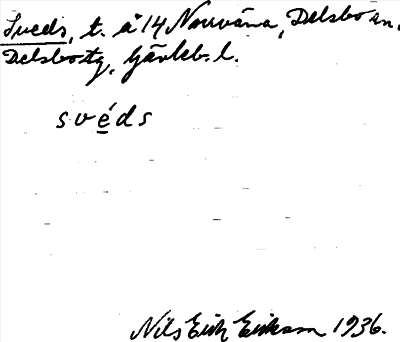 Sveds, t. å 14 Norrväna, Delsbo sn.
Delsbo tg, Gävleb. l.
svéds
Nils Erik Erikson 1936.